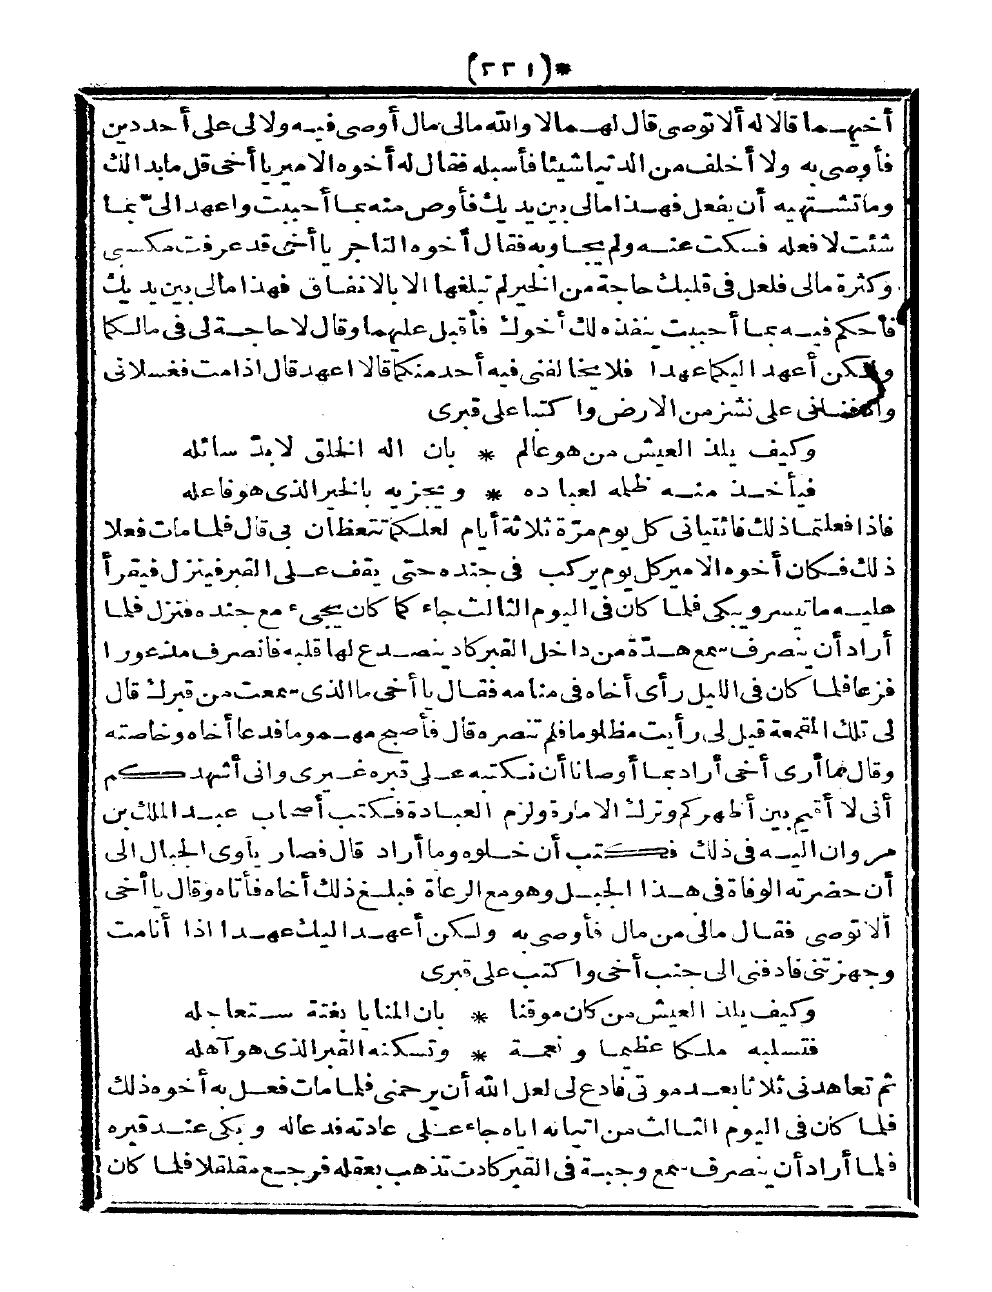 *(٢٢١)
أخيهما قالا له ألا توصى قال لهما لا والله مالى مال أوصى فيه ولا لى على أحد دين
فأوصى به ولا أخلف من الدنيا شيئا فأسبله فقال له أخوه الامير يا أخى قل ما بدا لك
وما تشتهيه أن يفعل فهذا مالى بين يديك فأوص منه بما أحببت واعهد الىّ بما
شئت لافعله فسكت عنه ولم يجاوبه فقال أخوه التاجر يا أخى قد عرفت مكسبى
وكثرة مالى فلعل فى قلبك حاجة من الخير لم تبلغها الا بالانفاق فهذا مالى بين يديك
فأحكم فيه بما أحببت ينفذه لك أخوك فأقبل عليهما وقال لا حاجة لى فى مالكما
ولكن أعهد اليكما عهدا فلا يخالفنى فيه أحد منكما قالا اعهد قال اذا مت فغسلانى
وادفنانى على نشز من الارض واكتبا على قبرى
وكيف يلذ العيش من هو عالم * بان اله الخلق لا بدّ سائله
فيأخذ منه ظلمه لعباده * ويجزيه بالخير الذى هو فاعله
فاذا فعلتما ذلك فائتيانى كل يوم مرّة ثلاثة أيام لعلكما تتعظان بى قال فلما مات فعلا
ذلك فكان أخوه الامير كل يوم يركب فى جنده حتى يقف على القبر فينزل فيقرأ
عليه ما تيسر ويبكى فلما كان فى اليوم الثالث جاء كما كان يجىء مع جنده فنزل فلما
أراد أن ينصرف سمع هدّة من داخل القبر كاد ينصدع لها قلبه فانصرف مذعورا
فزعا فلما كان فى الليل رأى أخاه فى منامه فقال يا أخى ما الذى سمعت من قبرك قال
لى تلك المقمعة قيل لى رأيت مظلوما فلم تنصره قال فأصبح مهموما فدعا أخاه وخاصته
وقال ما أرى أخى أراد بما أوصانا أن نكتبه على قبره غيرى وانى أشهدكم
أنى لا أقيم بين أظهركم وترك الامارة ولزم العبادة فكتب أصحاب عبد الملك بن
مروان اليه فى ذلك فكتب أن خلوه وما أراد قال فصار يأوى الجبال الى
أن حضرته الوفاة فى هذا الجبل وهو مع الرعاة فبلغ ذلك أخاه فأتاه وقال يا أخى
ألا توصى فقال مالى من مال فأوصى به ولكن أعهد اليك عهدا اذا أنا مت
وجهزتنى فادفنى الى جنب أخى واكتب على قبرى
وكيف يلذ العيش من كان موقنا * بان المنايا بغتة ستعاجله
فتسلبه ملكا عظيما ونعمة * وتسكنه القبر الذى هو آهله
ثم تعاهدنى ثلاثا بعد موتى فادع لى لعل الله أن يرحمنى فلما مات فعل به أخوه ذلك
فلما كان فى اليوم الثالث من اتيانه اياه جاء على عادته فدعا له وبكى عند قبره
فلما أراد أن ينصرف سمع وجبة فى القبر كادت تذهب بعقله فرجع مقلقلا فلما كان